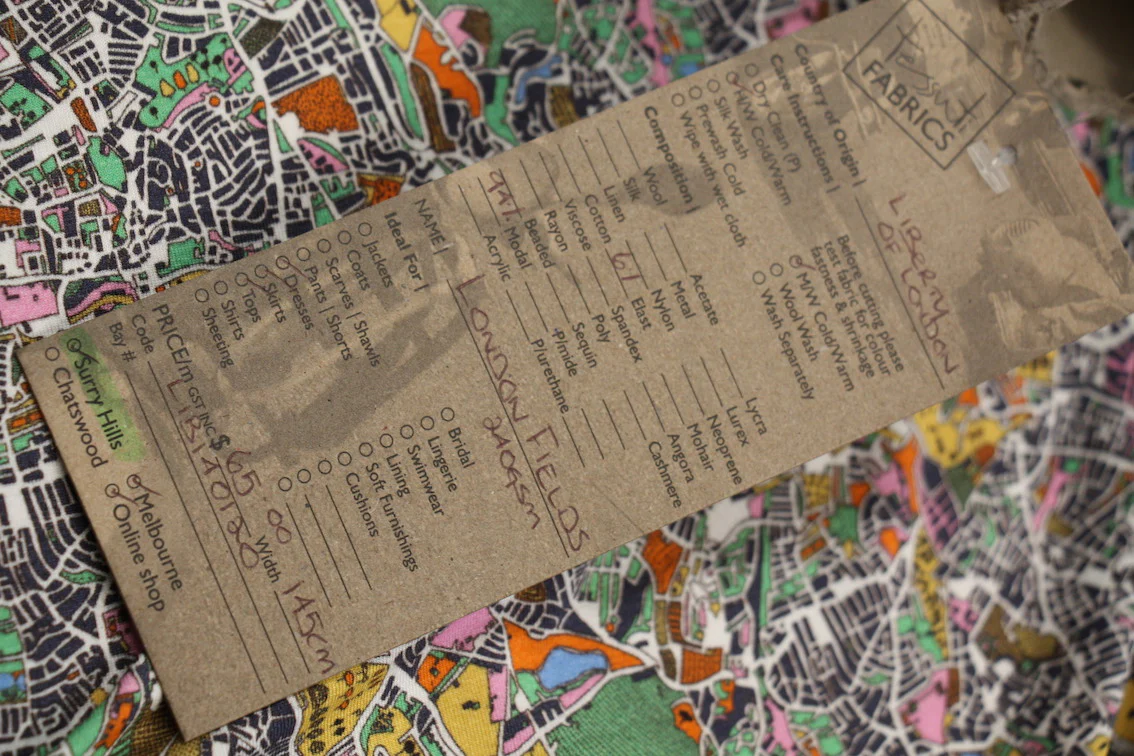 Tessuti
FABRICS
Country of Origin | LIBERTY
OF LONDON
Care Instructions |
Dry Clean (P)
H/W Cold/Warm
Silk Wash
Prewash Cold
Wipe with wet cloth
Before cutting please
test fabric for colour
fastness & shrinkage
M/W Cold/Warm
Wool Wash
Wash Separately
Composition |
Wool
Silk
Linen
Cotton
Viscose
Rayon
Beaded
94% Modal
Acrylic
Acetate
Metal
Nylon
6% Elast
Spandex
Poly
Sequin
P/mide
P/urethane
Lycra
Lurex
Neoprene
Mohair
Angora
Cashmere
NAME | LONDON FIELDS
240gsm
Ideal For |
Jackets
Coats
Scarves | Shawls
Pants | Shorts
Dresses
Skirts
Tops
Shirts
Sheeting
Bridal
Lingerie
Swimwear
Lining
Soft Furnishings
Cushions
PRICE/m GST INC $ 65.00 Width 145cm
Code LIB140120
Bay #
Surry Hills
Chatswood
Melbourne
Online shop